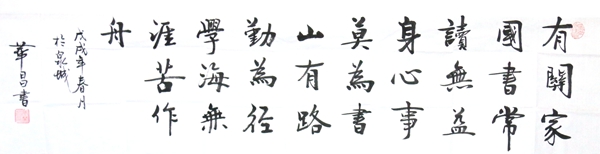 有關家
國書常
讀無益
身心事
莫為書
山有路
勤為径
學海無
涯苦作
舟
戊戌年春月
於泉城
華昌書